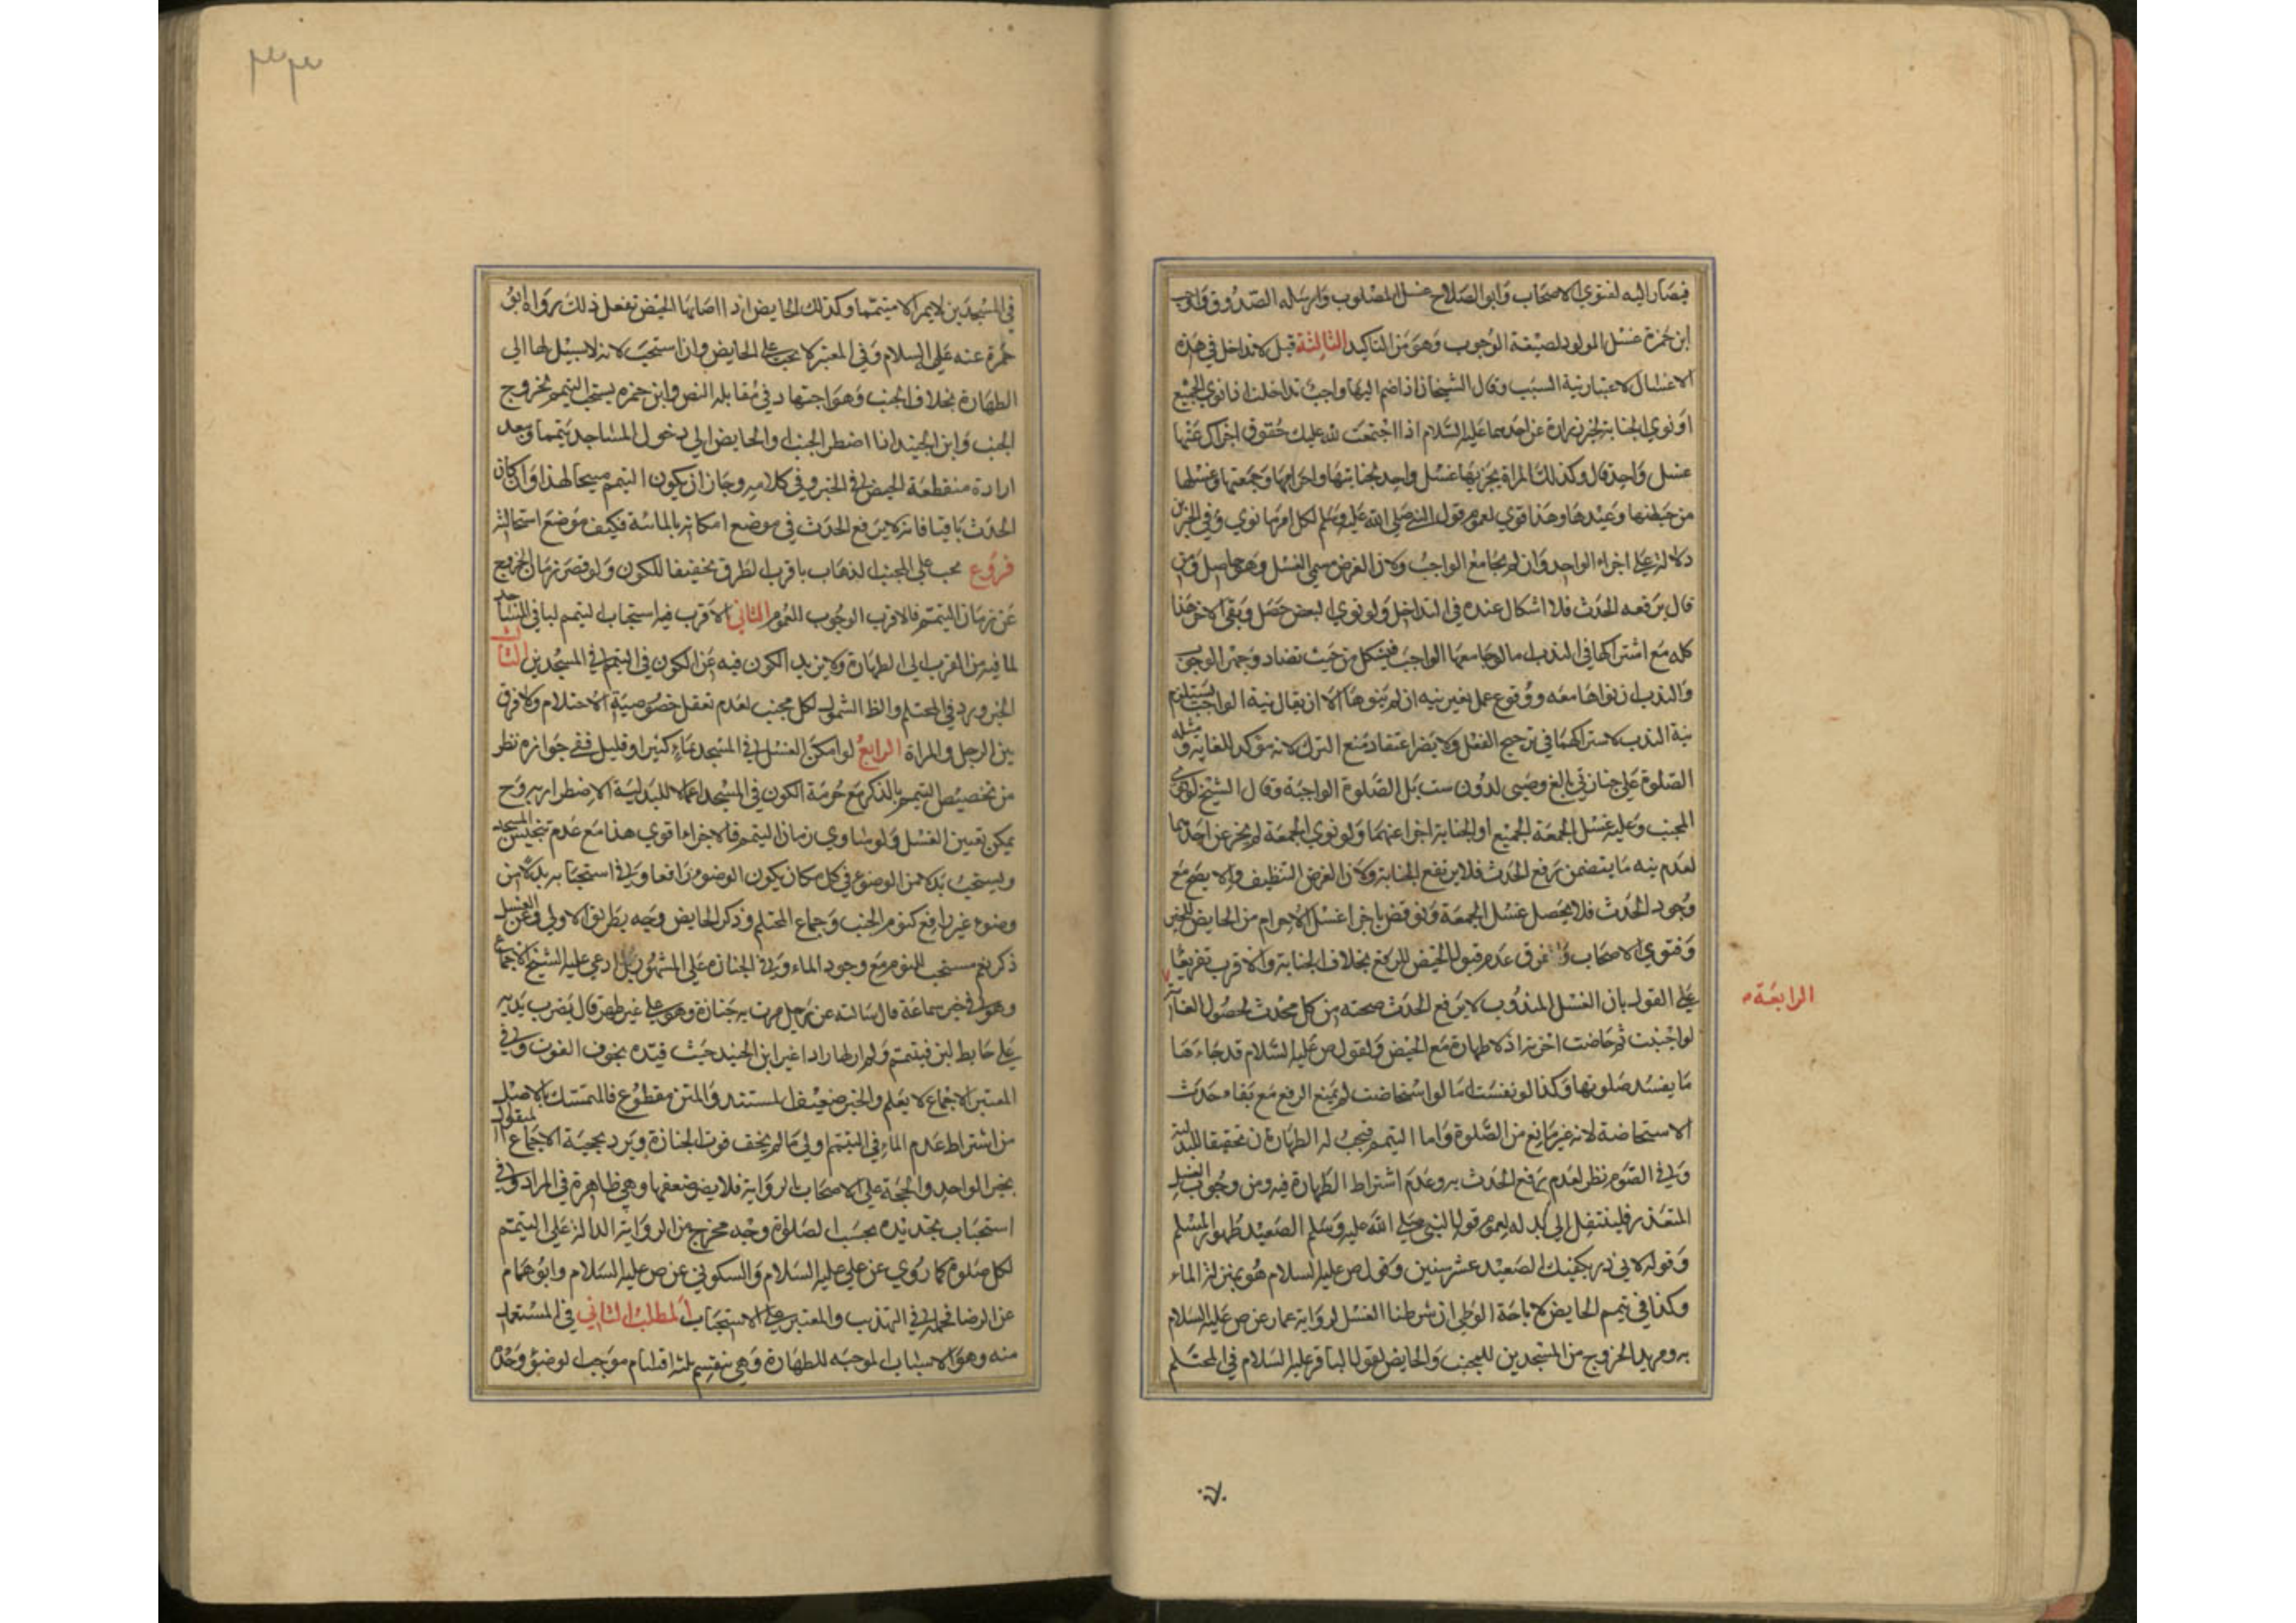 فيصار اليه لفتوي الاصحاب وابو الصلاح غسل المصلوب وارسله الصدوق واوجب
ابن حمزة غسل المولود لصيغة الوجوب وهو من التاكيد الثالثة قيل لا تداخل في هذه
الاغسال لاعتبار نية السبب وقال الشيخان اذا ضم اليها واجب تداخلت اذا نوي الجميع
او نوي الجنابة لخبر زرارة عن احدهما عليه السلام اذا اجتمعت لله عليك حقوق اجزاك عنها
غسل واحد قال وكذلك المراة يجزيها غسل واحد لجنابتها واحرامها وجمعتها وغسلها
من حيضها وعيدها وهذا قوي لعموم قول النبي صلي الله عليه وسلم لكل امرئ ما نوي وفي الخبرين
دلالة علي اجزاء الواحد وان لم يجامع الواجب ولان الغرض مسمي الغسل وهو حاصل ومن
قال برفعه الحدث فلا اشكال عنده في التداخل ولو نوي البعض حصل وبقي الاخر هذا
كله مع اشتراكها في الندب اما لو جامعها الواجب فيشكل من حيث تضاد وجهي الوجوب
والندب ان نواهما معه ووقوع عمل بغير نيه ان لم ينوها الا ان يقال نية الواجب يستلزم
نية الندب لاشتراكهما في ترجيح الفعل ولا يضر اعتقاد منع الترك لانه مؤكد للغاية ومثله
الصلوة علي جنازتي بالغ وصبي لدون ست بل الصلوة الواجبة وقال الشيخ لو نوي
المجنب وعليه غسل الجمعة الجميع او الجنابة اجزا عنهما ولو نوي الجمعة لم يجز عن احدهما
لعدم نيه ما يتضمن رفع الحدث فلا يرتفع الجنابة ولان الغرض التنظيف ولا يصح مع
وجود الحدث فلا يحصل غسل الجمعة ونوقض باجزا غسل الاحرام من الحايض للخبر
وفتوي الاصحاب و فرق عدم قبول الحيض للرفع بخلاف الجنابة والاقرب تفريعا
الرابعة
علي القول بان الغسل المندوب لا يرفع الحدث صحته من كل محدث لحصول الغاية
لو اجنبت ثم حاضت اخرته اذ لا طهارة مع الحيض ولقول ص عليه السلام قد جاءها
ما يفسد صلوتها وكذا لو نفست اما لو استحاضت لم يمنع الرفع مع بقاء حدث
الاستحاضة لانه غير مانع من الصلوة واما التيمم فيجب له الطهارتان تحقيقا للبدلية
وفي الصوم نظر لعدم رفع الحدث به وعدم اشتراط الطهارة فيه ومن وجوب الغسل
المتعذر فلينتقل الي بدله لعموم قول النبي صلي الله عليه وسلم الصعيد طهور المسلم
وقوله لابي ذر يكفيك الصعيد عشر سنين وكقول ص عليه السلام هو بمنزلة الماء
وكذا في تيمم الحايض لاباحة الوطي ان شرطنا الغسل لرواية عمار عن ص عليه السلام
به ومريد الخروج من المسجدين للمجنب والحايض لقول الباقر عليه السلام في المحتلم
في المسجدين لا يمر الا متيمما وكذلك الحايض اذا اصابها الحيض تفعل ذلك رواه ابو
حمزة عنه عليه السلام وفي المعتبر لا يجب علي الحايض وان استحب لانه لا سبيل لها الي
الطهارة بخلاف الجنب وهو اجتهاد في مقابله النص وابن حمزه يستحب التيمم لخروج
الجنب وابن الجنيد اذا اضطر الجنب والحايض الي دخول المساجد تيمما وبعد
ارادة منقطعة الحيض في الخبر وفي كلامه وجاز ان يكون التيمم مبيحا لهذا وان كان
الحدث باقيا فانه لا يرفع الحدث في موضع امكانه بالمائية فكيف موضع استحالته
فروع يجب علي المجنب الذهاب باقرب الطرق تخفيفا للكون ولو قصر زمان الخروج
عن زمان التيمم فالاقرب الوجوب للعموم الثاني الاقرب فيه استحباب التيمم لباقي المساجد
لما فيه من القرب الي الطهارة ولا يزيد الكون فيه عن الكون في التيمم في المسجدين الثالث
الخبر ورد في المحتلم والظ الشمول لكل مجنب لعدم تعقل خصوصية الاحتلام ولا فرق
بين الرجل والمراة الرابع لو امكن الغسل في المسجد بماء كثير او قليل ففي جوازه نظر
من تخصيص التيمم بالذكر مع حرمة الكون في المسجد اعمالا للبدلية الاضطراريه وح
يمكن تعيين الغسل ولو ساوي زمان التيمم فالاجزاء اقوي هذا مع عدم تنجيس المسجد
ويستحب بدلا من الوضوء في كل مكان يكون الوضوء رافعا وفي استحبابه بدلا من
وضوء غير رافع كنوم الجنب وجماع المحتلم وذكر الحايض وجه بطريق الاولي وعن الغسل
ذكر نعم مستحب للنوم مع وجود الماء وفي الجنازه علي المشهور بل ادعي عليه الشيخ الاجماع
وهو في خبر سماعة قال سالته عن رجل مرت به جنازة وهو علي غير طهر قال يضرب يديه
علي حايط لبن فيتيمم ولم ار لها رادا غير ابن الجنيد حيث قيده بخوف الفوت وفي
المعتبر الاجماع لا يعلم والخبر ضعيف المستند والمتن مقطوع فالتمسك بالاصل
من اشتراط عدم الماء في التيمم اولي ما لم يخف فوت الجنازة ويرد بحجية الاجماع المنقول
بخبر الواحد والحجة علي الاصحاب بالرواية فلا يضر ضعفها وهي ظاهرة في المراد وفي
استحباب تجديده بحسب الصلوة وجه مخرج من الرواية الدالة علي التيمم
لكل صلوة كما روي عن علي عليه السلام والسكوني عن ص عليه السلام وابو همام
عن الرضا فحملا في التهذيب والمعتبر علي الاستحباب المطلب الثاني في المستعمل
منه وهو الاسباب الموجبه للطهارة وهي تنقسم ثلثة اقسام موجب الوضوء وحده